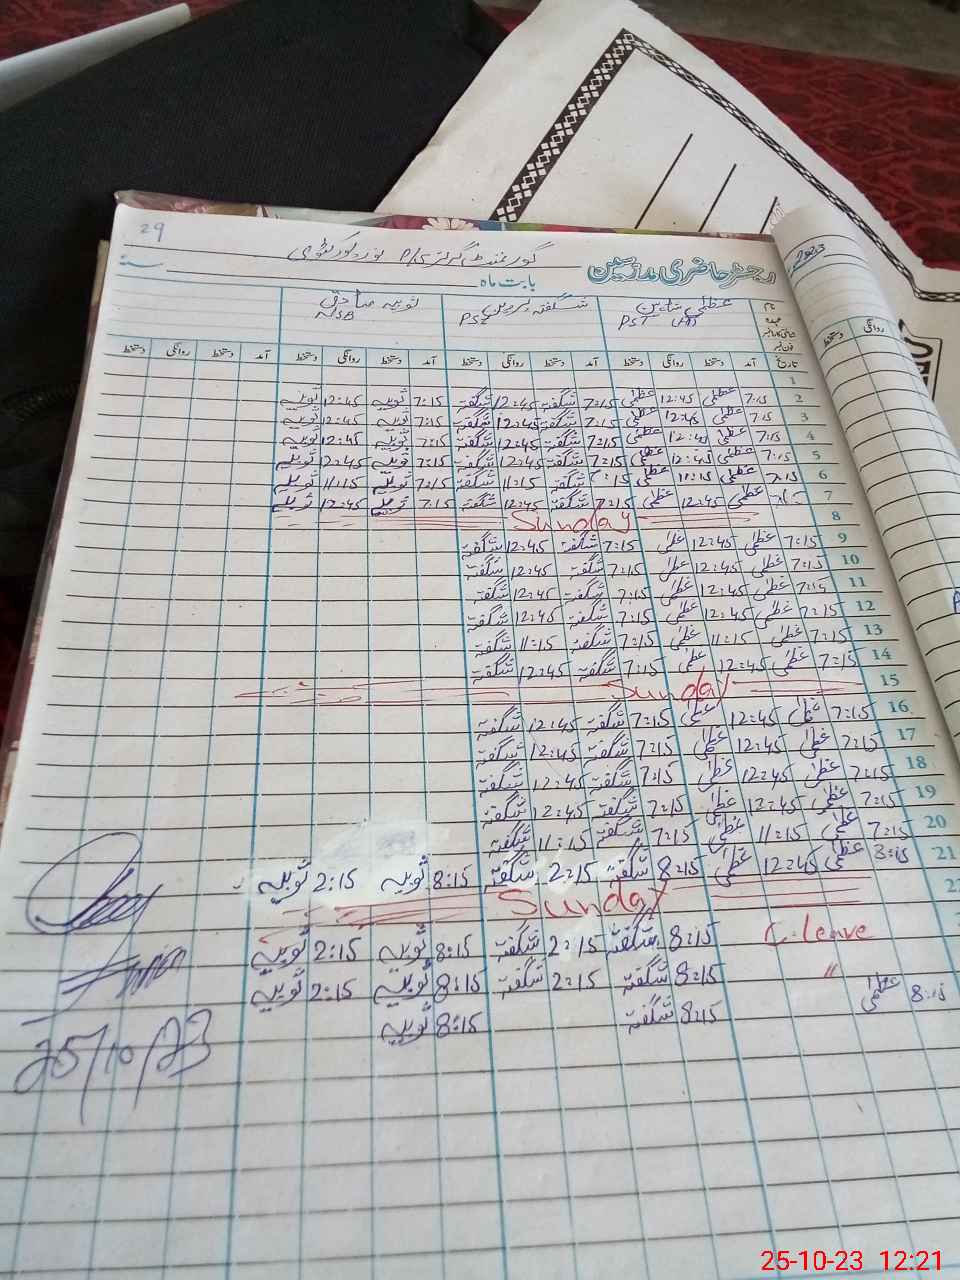 29
رجسٹر حاضری مدرسین گورنمنٹ گرلز P/S
بابت ماہ سنہ
2023
نام عظمیٰ شاہین شگفتہ پروین ثوبیہ صادق
عہدہ PST PST NSB
تاریخ آمد دستخط روانگی دستخط آمد دستخط روانگی دستخط آمد دستخط روانگی دستخط آمد دستخط روانگی دستخط
1
2 7:15 عظمیٰ 12:45 عظمیٰ 7:15 شگفتہ 12:45 شگفتہ 7:15 ثوبیہ 12:45 ثوبیہ
3 7:15 عظمیٰ 12:45 عظمیٰ 7:15 شگفتہ 12:45 شگفتہ 7:15 ثوبیہ 12:45 ثوبیہ
4 7:15 عظمیٰ 12:45 عظمیٰ 7:15 شگفتہ 12:45 شگفتہ 7:15 ثوبیہ 12:45 ثوبیہ
5 7:15 عظمیٰ 12:45 عظمیٰ 7:15 شگفتہ 12:45 شگفتہ 7:15 ثوبیہ 12:45 ثوبیہ
6 7:15 عظمیٰ 11:15 عظمیٰ 7:15 شگفتہ 11:15 شگفتہ 7:15 ثوبیہ 11:15 ثوبیہ
7 عظمیٰ 12:45 عظمیٰ 7:15 شگفتہ 12:45 شگفتہ 7:15 ثوبیہ 12:45 ثوبیہ
8 Sunday
9 7:15 عظمیٰ 12:45 عظمیٰ 7:15 شگفتہ 12:45 شگفتہ
10 7:15 عظمیٰ 12:45 عظمیٰ 7:15 شگفتہ 12:45 شگفتہ
11 7:15 عظمیٰ 12:45 عظمیٰ 7:15 شگفتہ 12:45 شگفتہ
12 7:15 عظمیٰ 12:45 عظمیٰ 7:15 شگفتہ 12:45 شگفتہ
13 7:15 عظمیٰ 11:15 عظمیٰ 7:15 شگفتہ 11:15 شگفتہ
14 7:15 عظمیٰ 12:45 عظمیٰ 7:15 شگفتہ 12:45 شگفتہ
15 Sunday
16 7:15 عظمیٰ 12:45 عظمیٰ 7:15 شگفتہ 12:45 شگفتہ
17 7:15 عظمیٰ 12:45 عظمیٰ 7:15 شگفتہ 12:45 شگفتہ
18 7:15 عظمیٰ 12:45 عظمیٰ 7:15 شگفتہ 12:45 شگفتہ
19 7:15 عظمیٰ 12:45 عظمیٰ 7:15 شگفتہ 12:45 شگفتہ
20 7:15 عظمیٰ 11:15 عظمیٰ 7:15 شگفتہ 11:15 شگفتہ
21 8:15 عظمیٰ 12:45 عظمیٰ 8:15 شگفتہ 2:15 شگفتہ 8:15 ثوبیہ 2:15 ثوبیہ
Sunday
C-leave 8:15 شگفتہ 2:15 شگفتہ 8:15 ثوبیہ 2:15 ثوبیہ
" 8:15 شگفتہ 2:15 شگفتہ 8:15 ثوبیہ 2:15 ثوبیہ
8:15 عظمیٰ 8:15 شگفتہ 8:15 ثوبیہ
25/10/23
روانگی دستخط
25-10-23 12:21